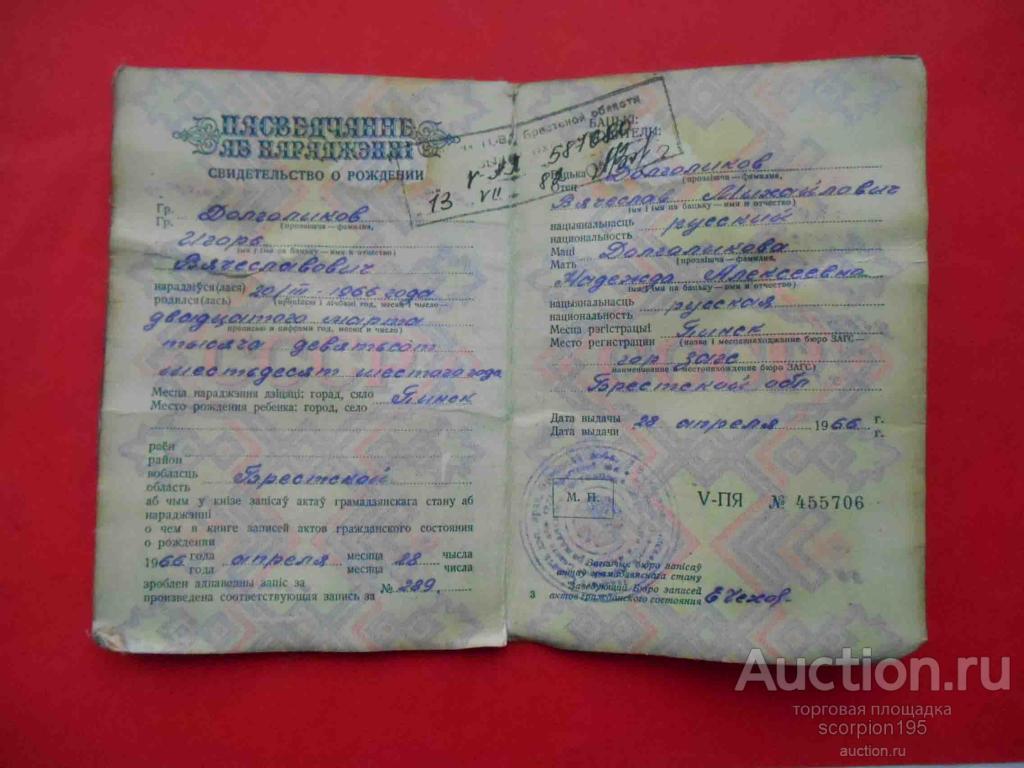 ПАСВЕДЧАННЕ
АБ НАРАДЖЭННІ
СВИДЕТЕЛЬСТВО О РОЖДЕНИИ
Гр.
Гр. Долгополиков
(прозвішча — фамилия,
Игорь
імя і імя на бацьку — имя и отчество)
Вячеславович
нарадзіўся(лася)
родился(лась) 20/III - 1966 года
(прописью и цифрами год, месяц и число)
двадцатого марта
тысяча девятьсот
шестьдесят шестого года
Месца нараджэння дзіцяці: горад, сяло
Место рождения ребенка: город, село Пинск
раён
район
вобласць
область Брестской
аб чым у кнізе запісаў актаў грамадзянскага стану аб
нараджэнні
о чем в книге записей актов гражданского состояния
о рождении
1966 года апреля месяца 28 чысла
года месяца числа
зроблен адпаведны запіс за
произведена соответствующая запись за № 289
Брестской области
13 VII
БАЦЬКІ:
Бацька
Отец
(прозвішча — фамилия,
Вячеслав Михайлович
імя і імя на бацьку — имя и отчество)
нацыянальнасць
национальность русский
Маці
Мать
(прозвішча — фамилия,
Надежда Алексеевна
імя і імя на бацьку — имя и отчество)
нацыянальнасць
национальность русская
Месца рэгістрацыі
Место регистрации Пинск
(назва і месцазнаходжанне бюро ЗАГС —
гор загс
наименование и местонахождение бюро ЗАГС)
Брестской обл
Дата выдачы
Дата выдачи 28 апреля 1966 г.
г.
М. П.
V-ПЯ № 455706
Загадчык бюро запісаў
актаў грамадзянскага стану
Заведующий бюро записей
актов гражданского состояния
3
Auction.ru
торговая площадка
scorpion195
auction.ru